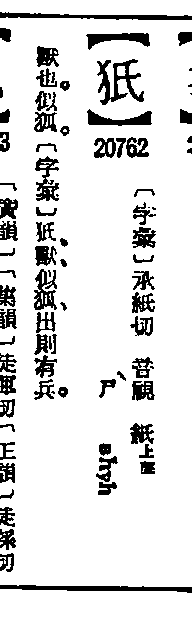 【狋】
20762
〔字彙〕承紙切 音視 紙上聲
ㄕˋ shyh
獸也。似狐。〔字彙〕狋、獸、似狐、出則有兵。
3
〔寶韻〕〔集韻〕徒
切〔正韻〕徒
切